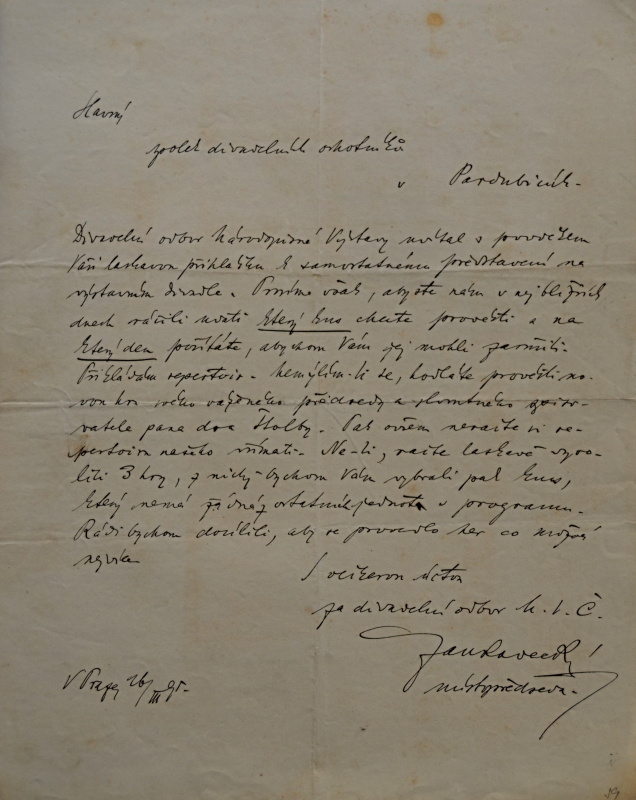 Slavný
spolek divadelních ochotníků
v Pardubicích.
Divadelní odbor Národopisné Výstavy uvítal s povděkem
Vaši laskavou přihlášku k samostatnému představení na
výstavním divadle. Prosíme však, abyste nám v nejbližších
dnech ráčili uvésti který kus chcete provésti a na
který den pořítáte, abychom Vám jej mohli zaručiti.
Přikládám repertoir. Nemýlím-li se, hodláte provésti no-
vou hru svého váženého předsedy a slovutného spiso-
vatele pana dra Štolby. Pak ovšem neračte si re-
pertoiru našeho všímati. Ne-li, račte laskavě vyvo-
liti 3 hry, z nichž bychom Vám vybrali pak kus,
který nemá žádná z ostatních jednota v programu.
Rádi bychom docílili, aby se provedlo her co možná
nejvíce
S veškerou úctou
za divadelní odbor N. V. Č.
místopředseda.
V Praze 26/III 95.